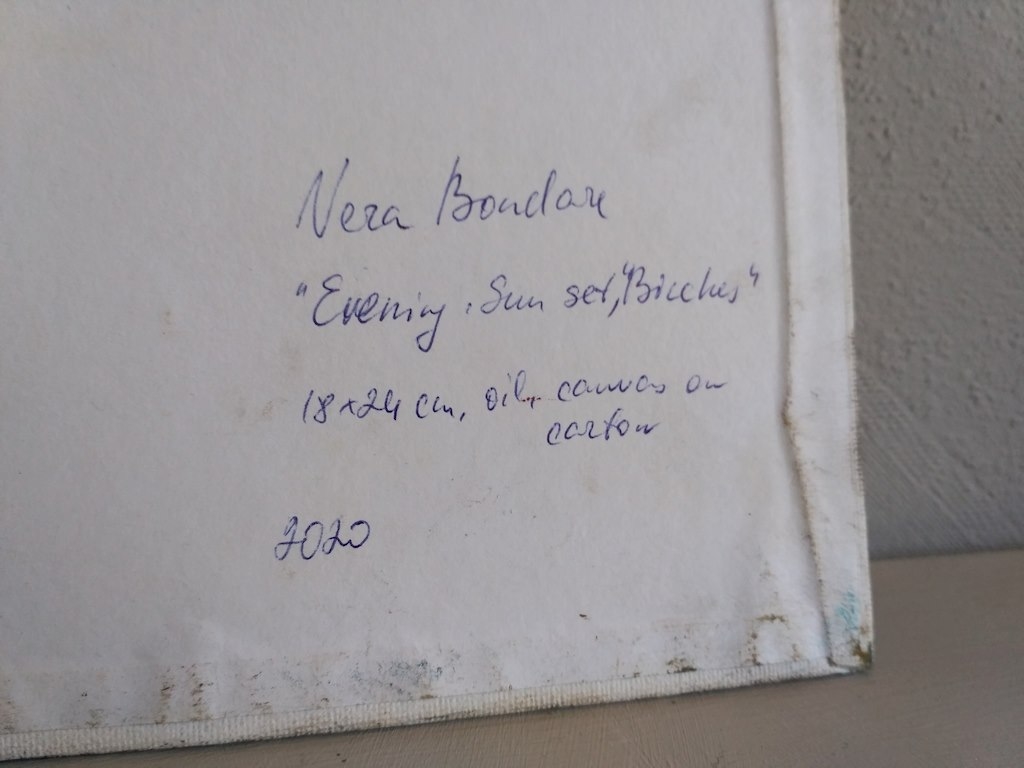 Vera Bondare
"Evening. Sun set, "Birches"
18x24 cm, oil, canvas on
carton
2020